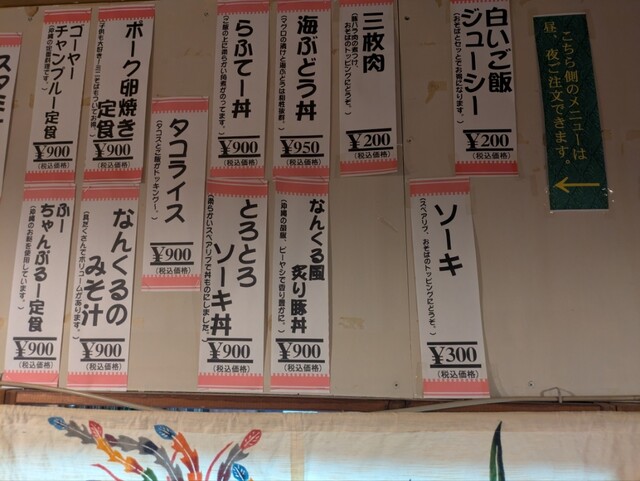 こちら側のメニューは
昼、夜ご注文できます。
←
白いご飯
ジューシー
(おそばとセットでお得になります。)
¥200
(税込価格)
三枚肉
(豚バラ肉の煮つけ、
おそばのトッピングにどうぞ。)
¥200
(税込価格)
海ぶどう丼
(マグロの漬けと海ぶどうは相性抜群。)
¥950
(税込価格)
らふてー丼
(ご飯の上に柔らかい角煮がのってます。)
¥900
(税込価格)
タコライス
(タコスとご飯がドッキング〜。)
¥900
(税込価格)
ポーク卵焼き
定食
¥900
(税込価格)
ゴーヤー
チャンプルー定食
(沖縄の定番料理です。)
¥900
(税込価格)
スタミ
ソーキ
(スペアリブ、おそばのトッピングにどうぞ。)
¥300
(税込価格)
なんくる風
炙り豚丼
(沖縄の胡椒、ピーヤシで香り豊かに。)
¥900
(税込価格)
とろとろ
ソーキ丼
(柔らかいスペアリブで丼ものにしました。)
¥900
(税込価格)
なんくるの
みそ汁
(具だくさんでボリュームがあります。)
¥900
(税込価格)
ふー
ちゃんぷるー定食
(沖縄のお麩を使用しています。)
¥900
(税込価格)